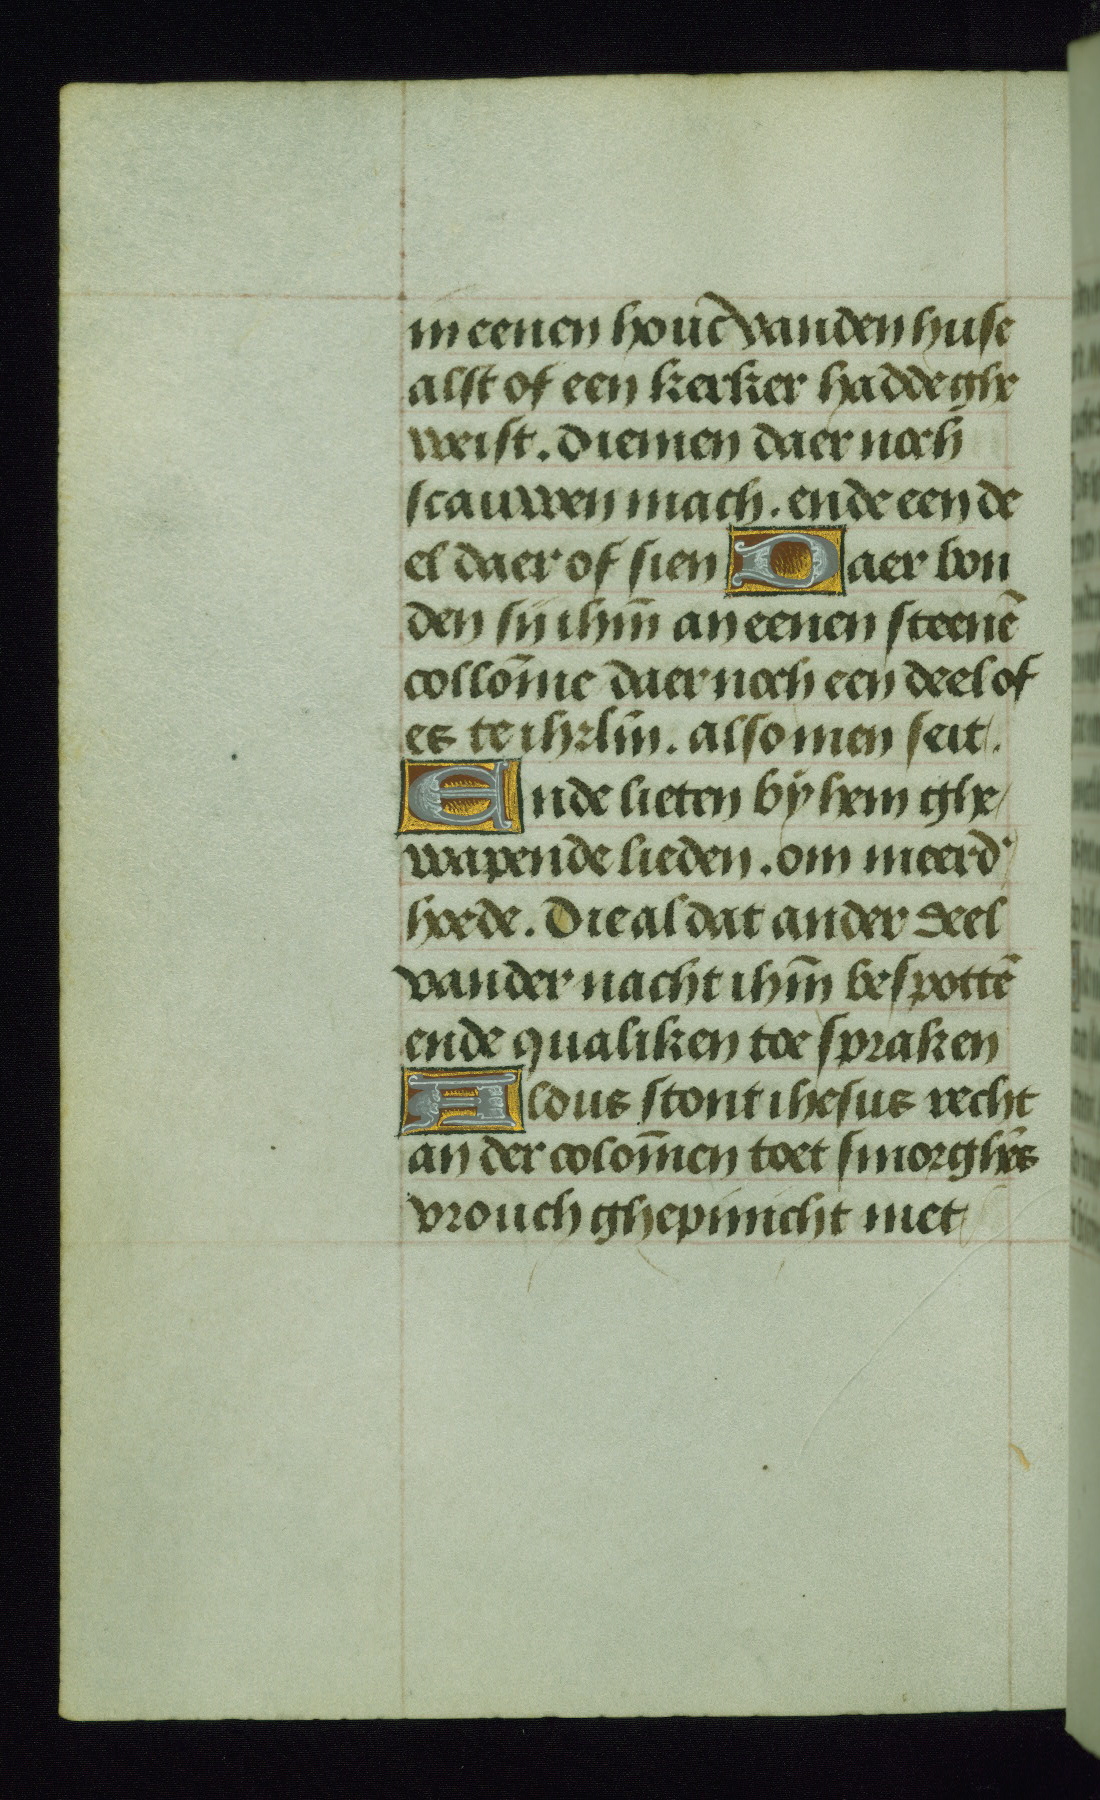 in eenen houc vanden huse
alst of een kerker hadde ghe
weist. Diemen daer noch
scauwen mach. ende een de
el daer of sien Daer bon
den sij ihm̄ an eenen steenē
collōme daer noch een deel of
es te ihrlm̄. also men seit.
Ende lieten bÿ hem ghe
wapende lieden. om meerd'
hoede. Die al dat ander deel
vander nacht ihm̄ bespottē
ende qualiken toe spraken
Aldus stont ihesus recht
an der colom̄en toet smorghēs
vrouch ghepinicht met